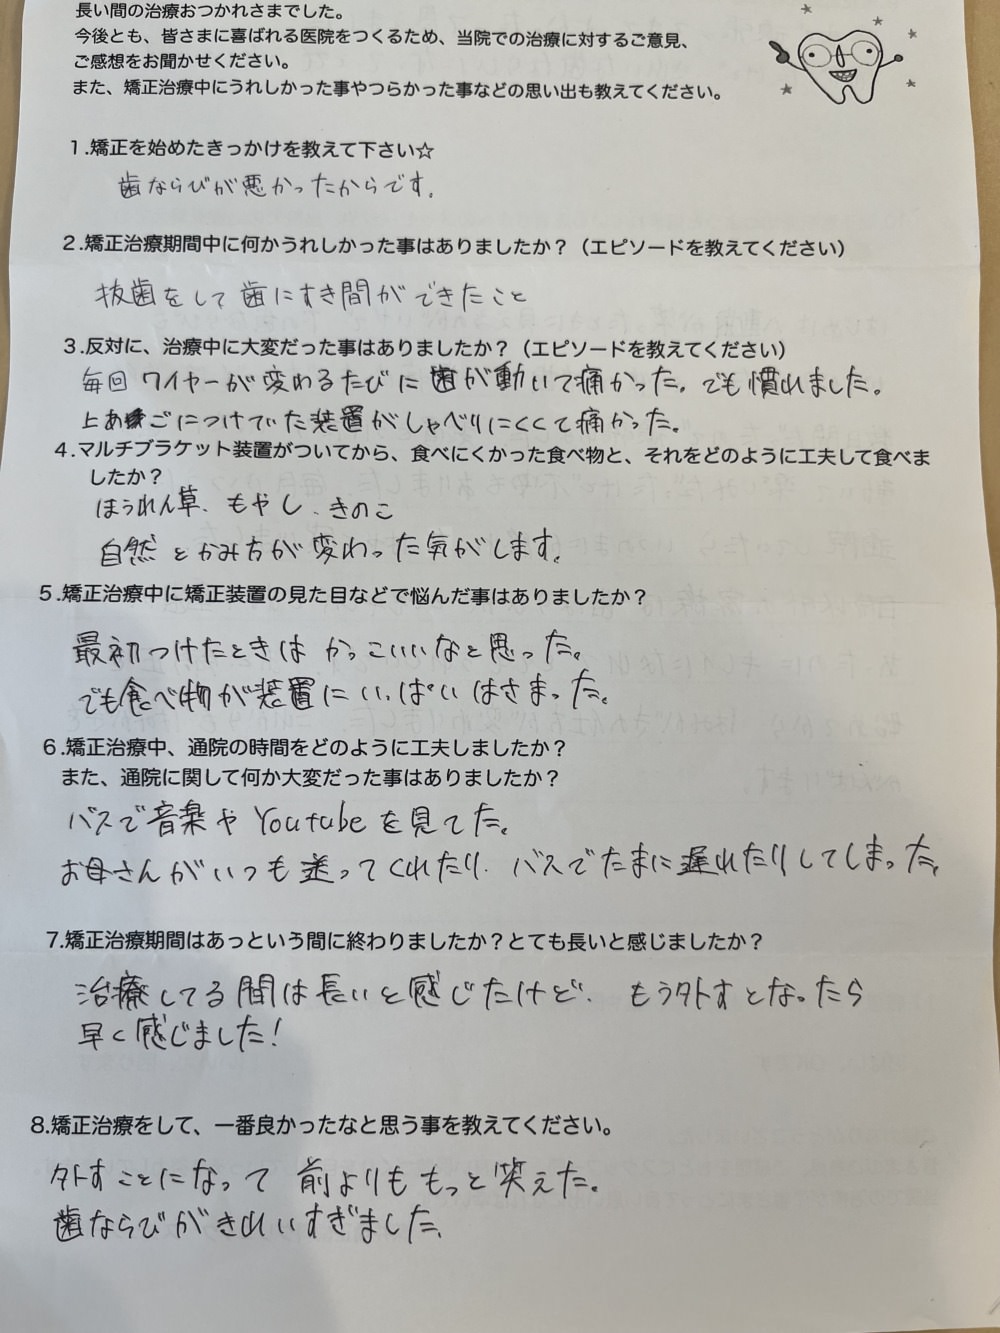 長い間の治療おつかれさまでした。
今後とも、皆さまに喜ばれる医院をつくるため、当院での治療に対するご意見、
ご感想をお聞かせください。
また、矯正治療中にうれしかった事やつらかった事などの思い出も教えてください。
1.矯正を始めたきっかけを教えて下さい☆
歯ならびが悪かったからです。
2.矯正治療期間中に何かうれしかった事はありましたか？（エピソードを教えてください）
抜歯をして歯にすき間ができたこと
3.反対に、治療中に大変だった事はありましたか？（エピソードを教えてください）
毎回ワイヤーが変わるたびに歯が動いて痛かった。でも慣れました。
上あごにつけていた装置がしゃべりにくくて痛かった。
4.マルチブラケット装置がついてから、食べにくかった食べ物と、それをどのように工夫して食べま
したか？
ほうれん草、もやし、きのこ
自然とかみ方が変わった気がします。
5.矯正治療中に矯正装置の見た目などで悩んだ事はありましたか？
最初つけたときはかっこいいなと思った。
でも食べ物が装置にいっぱいはさまった。
6.矯正治療中、通院の時間をどのように工夫しましたか？
また、通院に関して何か大変だった事はありましたか？
バスで音楽やYoutubeを見てた。
お母さんがいつも送ってくれたり、バスでたまに遅れたりしてしまった。
7.矯正治療期間はあっという間に終わりましたか？とても長いと感じましたか？
治療してる間は長いと感じたけど、もう外すとなったら
早く感じました！
8.矯正治療をして、一番良かったなと思う事を教えてください。
外すことになって前よりももっと笑えた。
歯ならびがきれいすぎました。